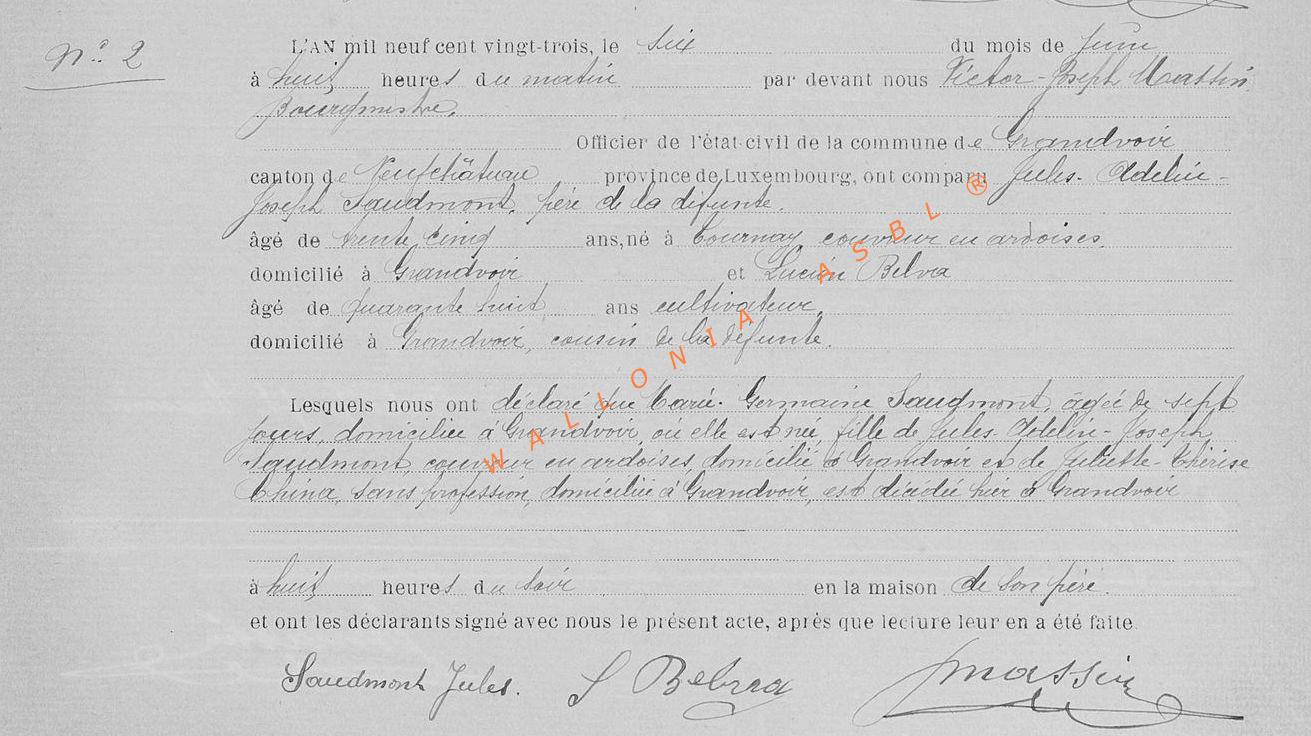 N° 2
L'AN mil neuf cent vingt-trois, le six du mois de Juin
à huit heures du matin par devant nous Victor-Joseph Massin
Bourgmestre.
Officier de l'état civil de la commune de Grandvoir
canton de Neufchâteau province de Luxembourg, ont comparu Jules-Adelin-
Joseph Saudmont, père de la défunte.
âgé de trente cinq ans, né à Tournay, couvreur en ardoises,
domicilié à Grandvoir et Lucien
âgé de quarante huit ans cultivateur,
domicilié à Grandvoir, cousin de la défunte.
Lesquels nous ont déclaré que Marie-Germaine Saudmont, agée de sept
jours, domiciliée à Grandvoir, où elle est née, fille de Jules-Adelin-Joseph
Saudmont, couvreur en ardoises, domicilié à Grandvoir et de Juliette-Thérèse
China, sans profession, domiciliée à Grandvoir, est décédée hier à Grandvoir
à huit heures du soir en la maison de son père.
et ont les déclarants signé avec nous le présent acte, après que lecture leur en a été faite.
Saudmont Jules. Massin
WALLONIA ASBL ®